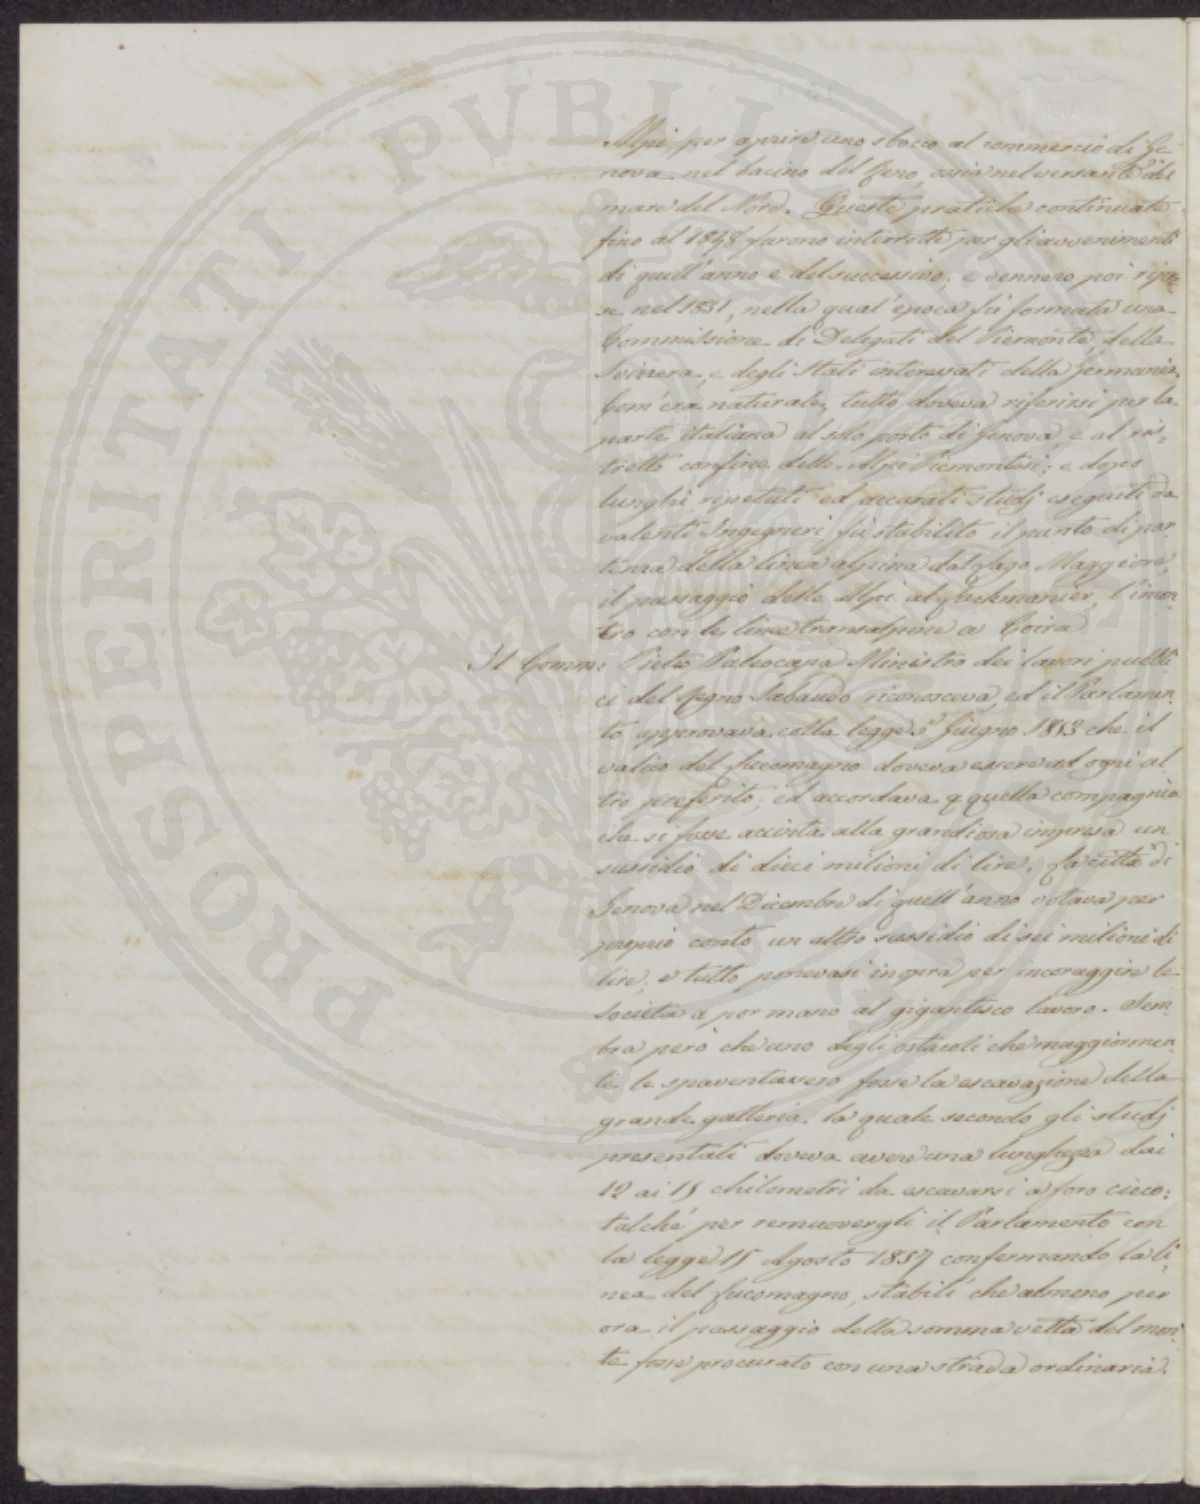 Alpi, per aprire uno sbocco al commercio di Ge-
nova nel bacino del Reno, ossia nel versante del
mare del Nord. Queste pratiche continuate
fino al 1848 furono interrotte per gli avvenimenti
di quell'anno e del successivo; e vennero poi ripre-
se nel 1851, nella qual'epoca fù formata una
Commissione di Delegati del Piemonte, della
Svizzera, e degli Stati interessati della Germania.
Com'era naturale, tutto doveva riferirsi per la
parte italiana al solo porto di Genova, e al ris-
tretto confine delle Alpi Piemontesi; e dopo
lunghi, ripetuti ed accurati studj eseguiti da
valenti Ingegneri, fù stabilito il punto di par-
tenza della linea alpina dal Lago Maggiore,
il passaggio delle Alpi al Luckmanier, l'incon-
tro con le linee transalpine a Coira.
Il Comm: Pietro Paleocapa Ministro dei lavori pubbli-
ci del Regno Sabaudo riconosceva, ed il Parlamen-
to approvava colla legge 5 Giugno 1853 che il
valico del Lucomagno doveva essere ad ogni al-
tro preferito; ed accordava a quella compagnia
che si fosse accinta alla grandiosa impresa un
sussidio di dieci milioni di lire. La città di
Genova nel Dicembre di quell'anno votava per
proprio conto un altro sussidio di sei milioni di
lire; e tutto ponevasi in opra per incoraggire le
società a por mano al gigantesco lavoro. Sem-
bra però che uno degli ostacoli che maggiormen-
te le spaventassero fosse la escavazione della
grande galleria, la quale secondo gli studj
presentati doveva avere una lunghezza dai
12 ai 15 chilometri da escavarsi a foro cieco;
talché per remuovergli il Parlamento con
la legge 15 Agosto 1857 confermando la li-
nea del Lucomagno, stabilì che almeno per
ora il passaggio della somma vetta del mon-
te fosse procurato con una strada ordinaria.
PROSPERITATI PUBLI